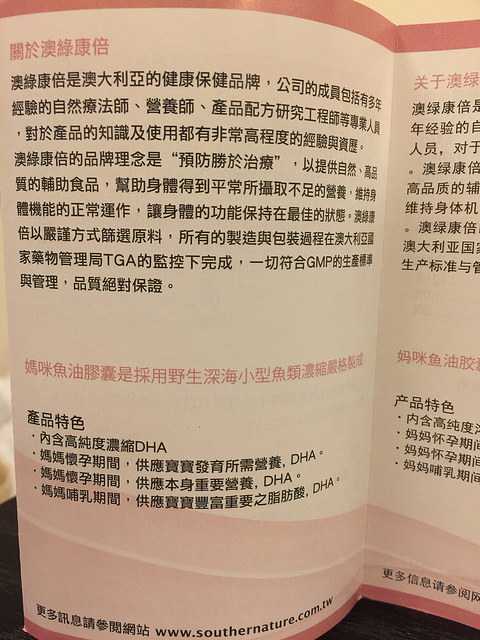 關於澳綠康倍
澳綠康倍是澳大利亞的健康保健品牌，公司的成員包括有多年
經驗的自然療法師、營養師、產品配方研究工程師等專業人員
，對於產品的知識及使用都有非常高程度的經驗與資歷。
澳綠康倍的品牌理念是“預防勝於治療”，以提供自然、高品
質的輔助食品，幫助身體得到平常所攝取不足的營養，維持身
體機能的正常運作，讓身體的功能保持在最佳的狀態。澳綠康
倍以嚴謹方式篩選原料，所有的製造與包裝過程在澳大利亞國
家藥物管理局TGA的監控下完成，一切符合GMP的生產標準
與管理，品質絕對保證。
媽咪魚油膠囊是採用野生深海小型魚類濃縮嚴格製成
產品特色
· 內含高純度濃縮DHA
· 媽媽懷孕期間，供應寶寶發育所需營養, DHA。
· 媽媽懷孕期間，供應本身重要營養, DHA。
· 媽媽哺乳期間，供應寶寶豐富重要之脂肪酸, DHA。
更多訊息請參閱網站 www.southernature.com.tw
关于澳绿
澳绿康倍是
年经验的自
人员，对于
。澳绿康倍
高品质的辅
维持身体机
。澳绿康倍
澳大利亚国
生产标准与管
妈咪鱼油胶
产品特色
· 内含高纯度
· 妈妈怀孕期间
· 妈妈怀孕期间
· 妈妈哺乳期间
更多信息请参阅网